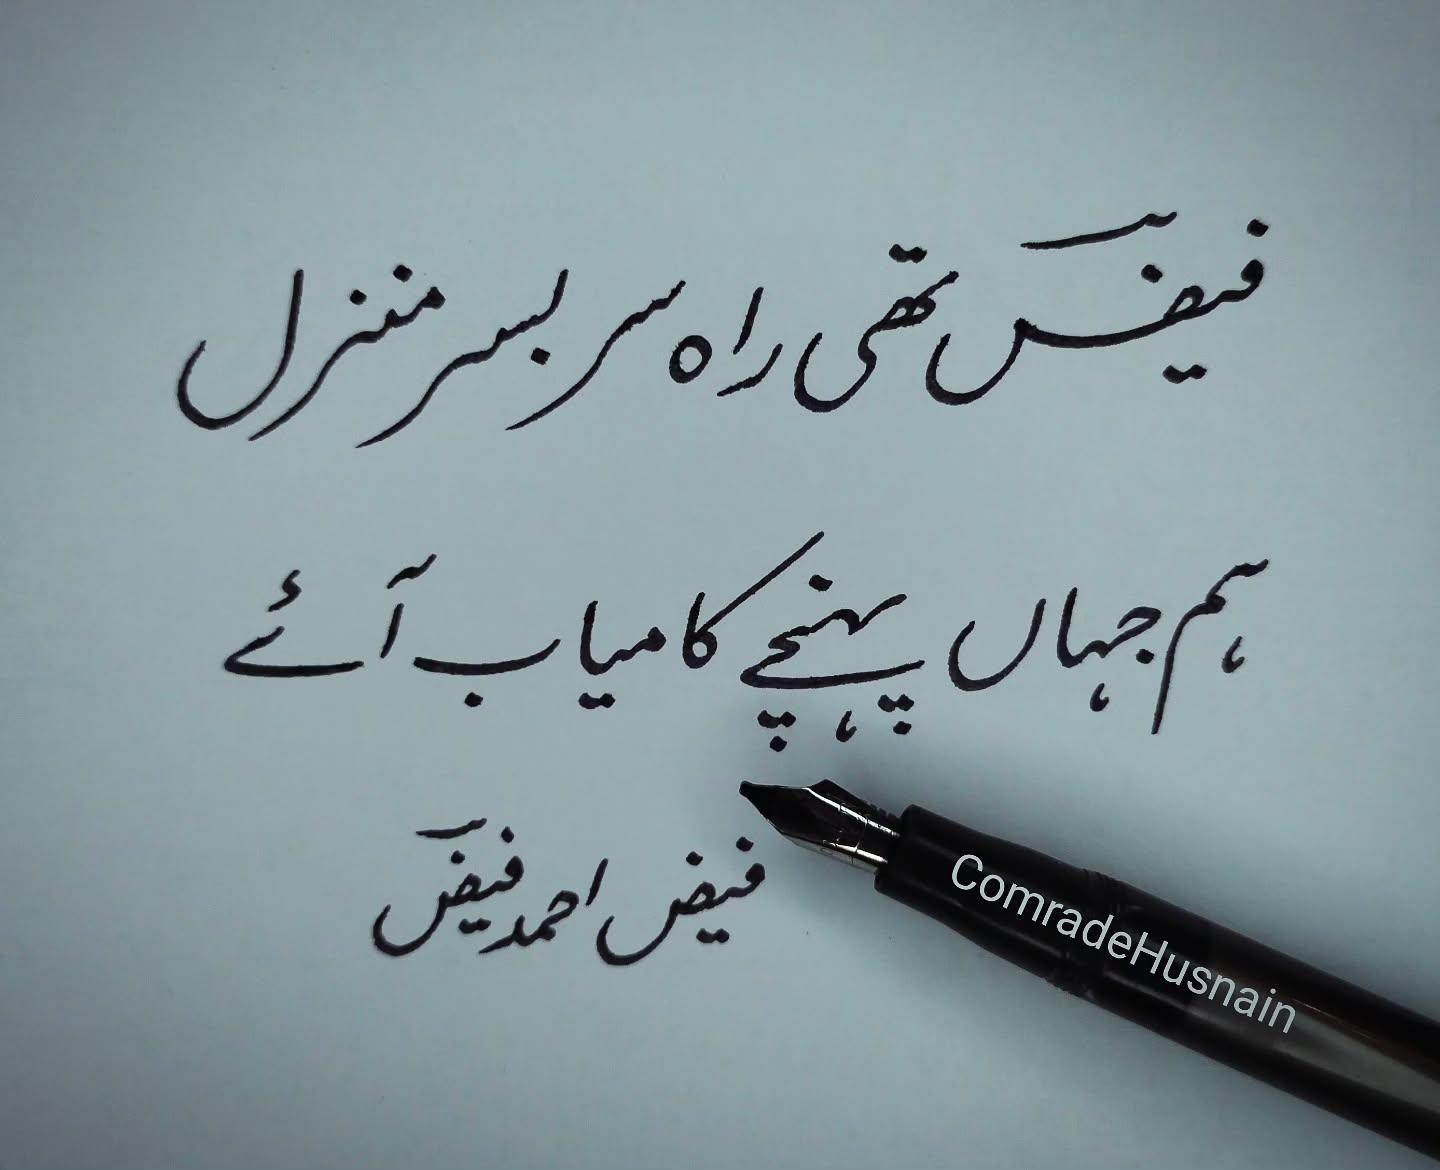 فیضؔ تھی راہ سر بسر منزل
ہم جہاں پہنچے کامیاب آئے
فیض احمد فیضؔ
ComradeHusnain